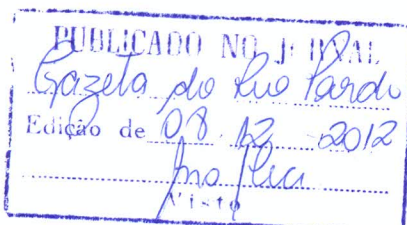 PUBLICADO NO JORNAL
Gazeta do Rio Pardo
Edição de 08.12.2012
Visto